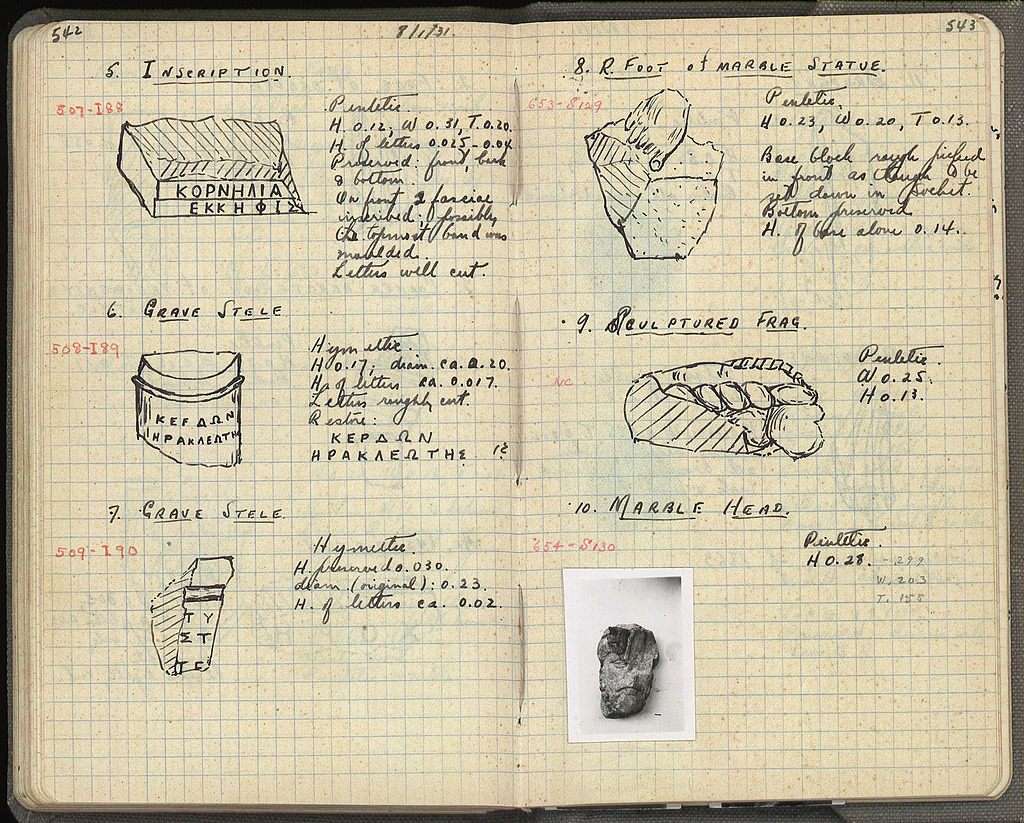 542
8/1/31.
5. INSCRIPTION.
507-I88
Pentelic.
H. 0.12, W 0.31, T 0.20.
H. of letters 0.025-0.04
Preserved: front, back
& bottom
On front 2 fasciae
inscribed; possibly
the topmost band was
moulded.
Letters well cut.
ΚΟΡΝΗΛΙΑ
ΕΚΚΗΦΙΣ
6. GRAVE STELE
508-I89
Hymettic.
H 0.17, diam. ca. 0.20.
H. of letters ca. 0.017.
Letters roughly cut.
Restore:
ΚΕΡΔΩΝ
ΗΡΑΚΛΕΩΤΗΣ
ΚΕΡΔΩΝ
ΗΡΑΚΛΕΩΤΗ
7. GRAVE STELE.
509-I90
Hymettic.
H. preserved 0.030.
diam. (original): 0.23.
H. of letters ca. 0.02.
ΤΥ
ΣΤ
ΤΕ
543
8. R. FOOT of MARBLE STATUE.
653-S129
Pentelic.
H 0.23, W 0.20, T 0.13.
Base block rough picked
in front as though to be
set down in socket.
Bottom preserved
H. of base alone 0.14.
9. SCULPTURED FRAG.
NC
Pentelic.
W 0.25.
H 0.13.
10. MARBLE HEAD.
654-S130
Pentelic.
H 0.28. - .299
W. 203
T. 155